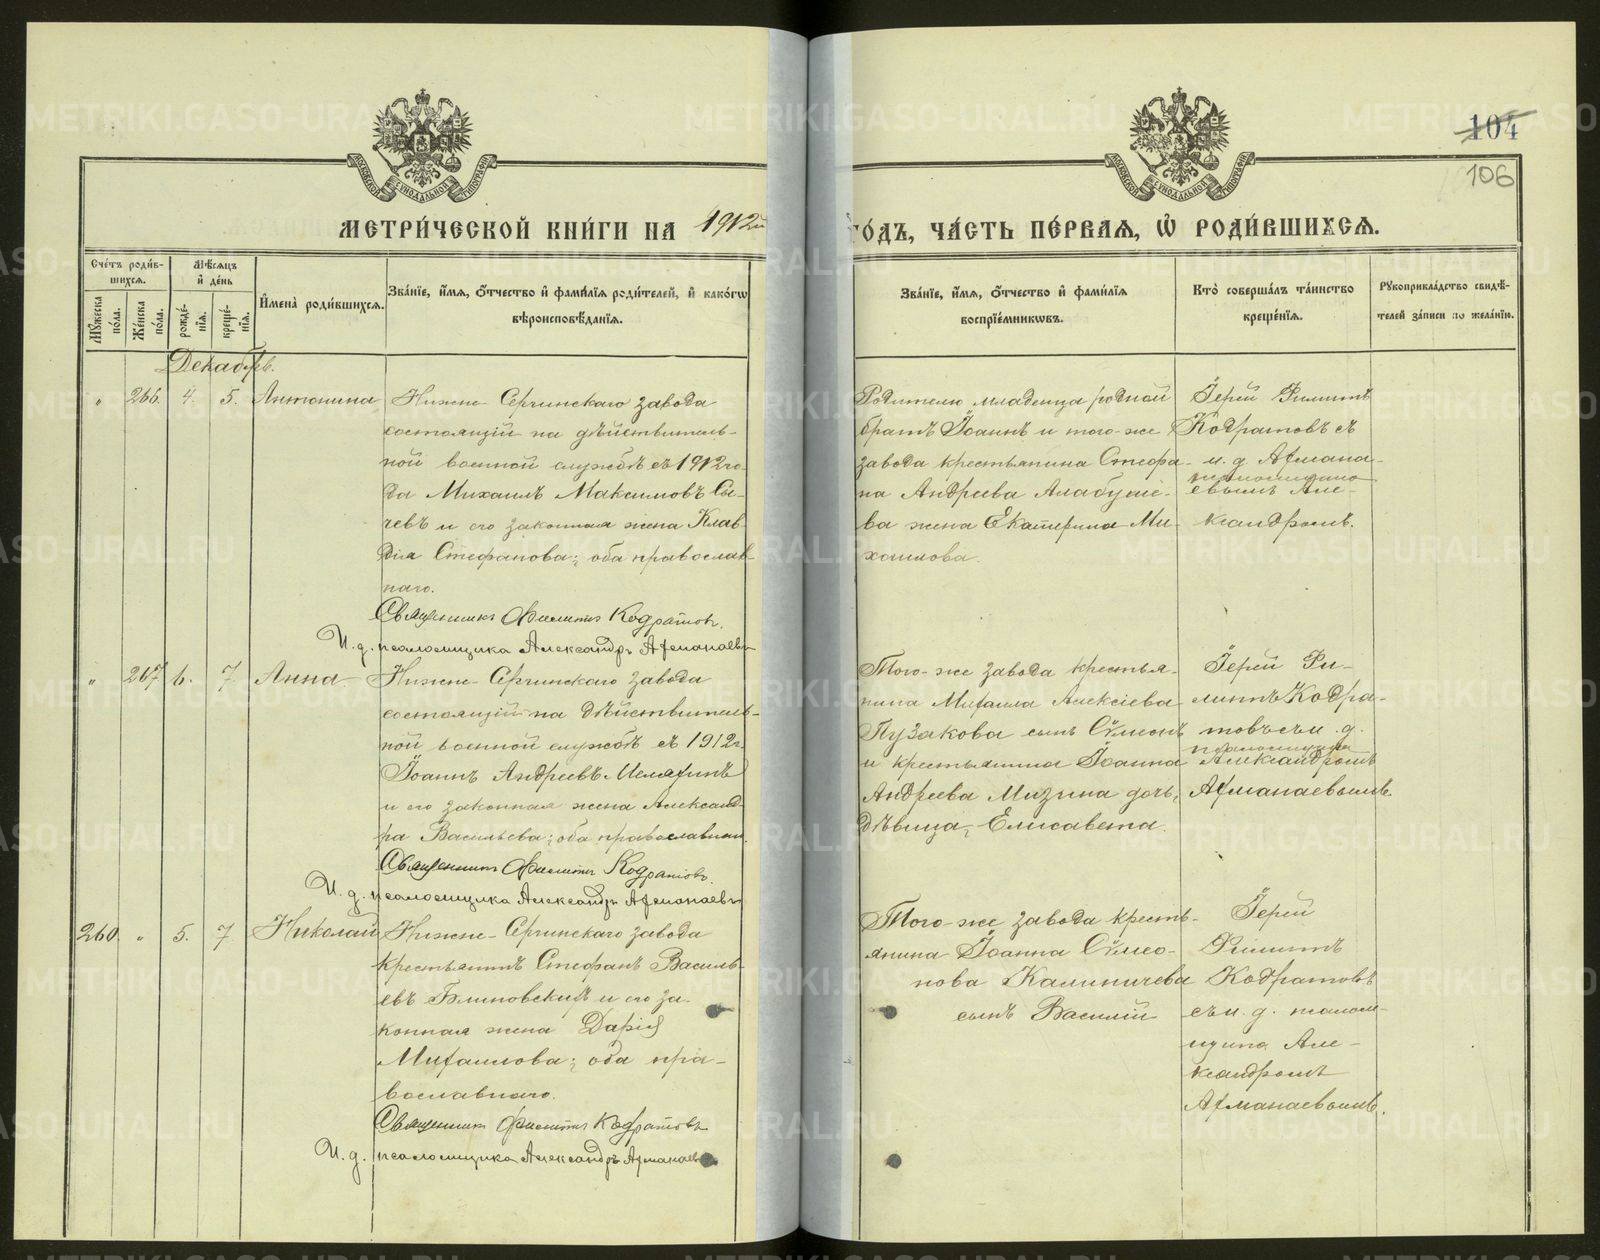 104
106
МЕТРИ́ЧЕСКОЙ КНИ́ГИ НА 1912й
ГО́ДЪ, ЧА́СТЬ ПЕ́РВАЯ, Ѡ РОДИ́ВШИХСЯ.
Сче́тъ роди́в-
шихся.
Мѣ́сяцъ
и́ де́нь
Му́жеска
по́ла.
Же́нска
по́ла.
рожде́-
нія.
креще́-
нія.
И́мена̀ роди́вшихся.
Зва́ніе, и́мя, о́тчество и́ фами́лія роди́телей, и́ како́гѡ
вѣроисповѣ́данія.
Зва́ніе, и́мя, о́тчество и́ фами́лія
воспріе́мниковъ.
Кто̀ соверша́лъ та́инство
креще́нія.
Рукоприкла́дство свидѣ́-
телей за́писи по жела́нію.
Декабрь.
" 266. 4. 5. Антонина
Нижне-Сергинскаго завода
состоящій на дѣйствитель-
ной военной службѣ съ 1912 го-
да Михаилъ Максимовъ Сы-
чевъ и его законная жена Клав-
дія Стефанова; оба православ-
наго.
Священникъ Филиппъ Кодратовъ.
И. д. псаломщика Александръ Атманаевъ
Родителю младенца родной
братъ Іоаннъ и того-же
завода крестьянина Стефа-
на Андреева Алабуше-
ва жена Екатерина Ми-
хаилова.
Іерей Филиппъ
Кодратовъ съ
и. д. Атмана-
псаломщика
евымъ Але-
ксандромъ.
" 267 6. 7 Анна
Нижне-Сергинскаго завода
состоящій на дѣйствитель-
ной военной службѣ съ 1912 г.
Іоаннъ Андреевъ
и его законная жена Александ-
ра Васильева; оба православнаго.
Священникъ Филиппъ Кодратовъ.
И. д. псаломщика Александръ Атманаевъ
Того-же завода крестья-
нина Михаила Алексіева
Пузакова сынъ Сѵмеонъ
и крестьянина Іоанна
Андреева Мизина дочь,
дѣвица, Елисавета.
Іерей Фи-
липпъ Кодра-
товъ съ и. д.
псаломщика
Александромъ
Атманаевымъ.
260. " 5. 7 Николай
Нижне-Сергинскаго завода
крестьянинъ Стефанъ Василь-
евъ Блиновскихъ и его за-
конная жена Дарія
Михаилова; оба пра-
вославнаго.
Священникъ Филиппъ Кодратовъ
И. д. псаломщика Александръ Атманаевъ
Того-же завода кресть-
янина Іоанна Сѵмео-
нова Калиничева
сынъ Василій
Іерей
Филиппъ
Кодратовъ
съ и. д. псалом-
щика Але-
ксандромъ
Атманаевымъ.